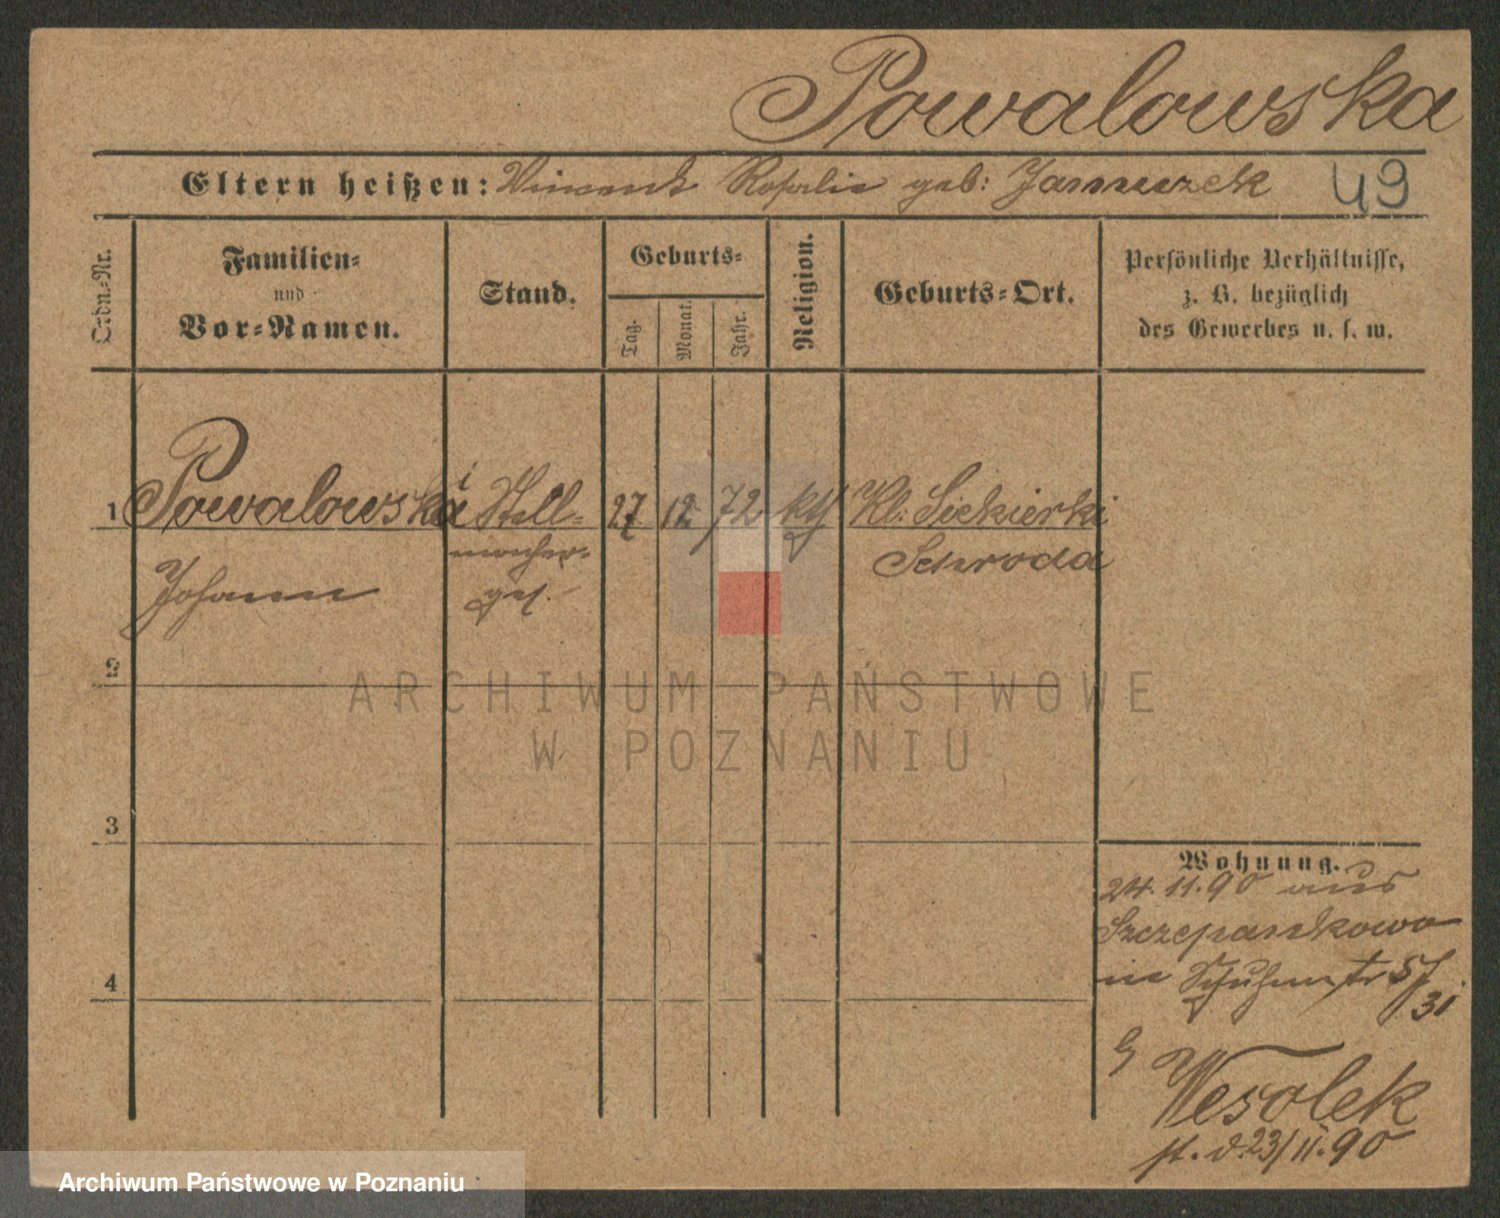 Powalowska
Eltern heißen: Vincent Rosalie geb: Januszek 49
Ordn.-Nr.
Familien-
und
Vor-Namen.
Stand.
Geburts-
Tag.
Monat.
Jahr.
Religion.
Geburts-Ort.
Persönliche Verhältnisse,
z. B. bezüglich
des Gewerbes u. s. w.
1 Powalowski Stell- 27 12 72 kth Kl. Siekierki
macher- Schroda
Johann ges.
2
3
4
Wohnung.
24.11.90 aus
Szczepankowo
in 57
/31
Wesolek
23/11.90
ARCHIWUM PAŃSTWOWE
W POZNANIU
Archiwum Państwowe w Poznaniu